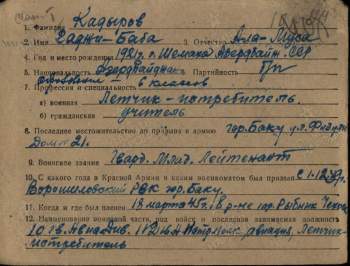 1. Фамилия Кадыров
2. Имя Гаджи-Баба 3. Отчество Ала-Муса
4. Год и место рождения 1921 г. г. Шемаха Азербайдж. ССР
5. Национальность Азербайджанец 6. Партийность
7. Профессия и специальность 6 классов
а) военная Летчик-истребитель.
б) гражданская учитель
8. Последнее местожительство до призыва в армию гор. Баку ул.
Дом № 21.
9. Воинское звание Гвард. Млад. Лейтенант
10. С какого года в Красной Армии и каким военкоматом был призван с
Ворошиловский РВК гор. Баку.
11. Когда и где был пленен 18 марта 45 г. в р-не гор.
12. Наименование воинской части, род войск и последняя занимаемая должность
10 гв. Авиадив. авиация, Летчик-
истребитель